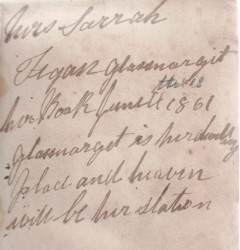 Mrs Sarrah
Fegan glassmarget
her Book June the 18
1861
glassmarget is her dwelling
place and heaven
will be her station